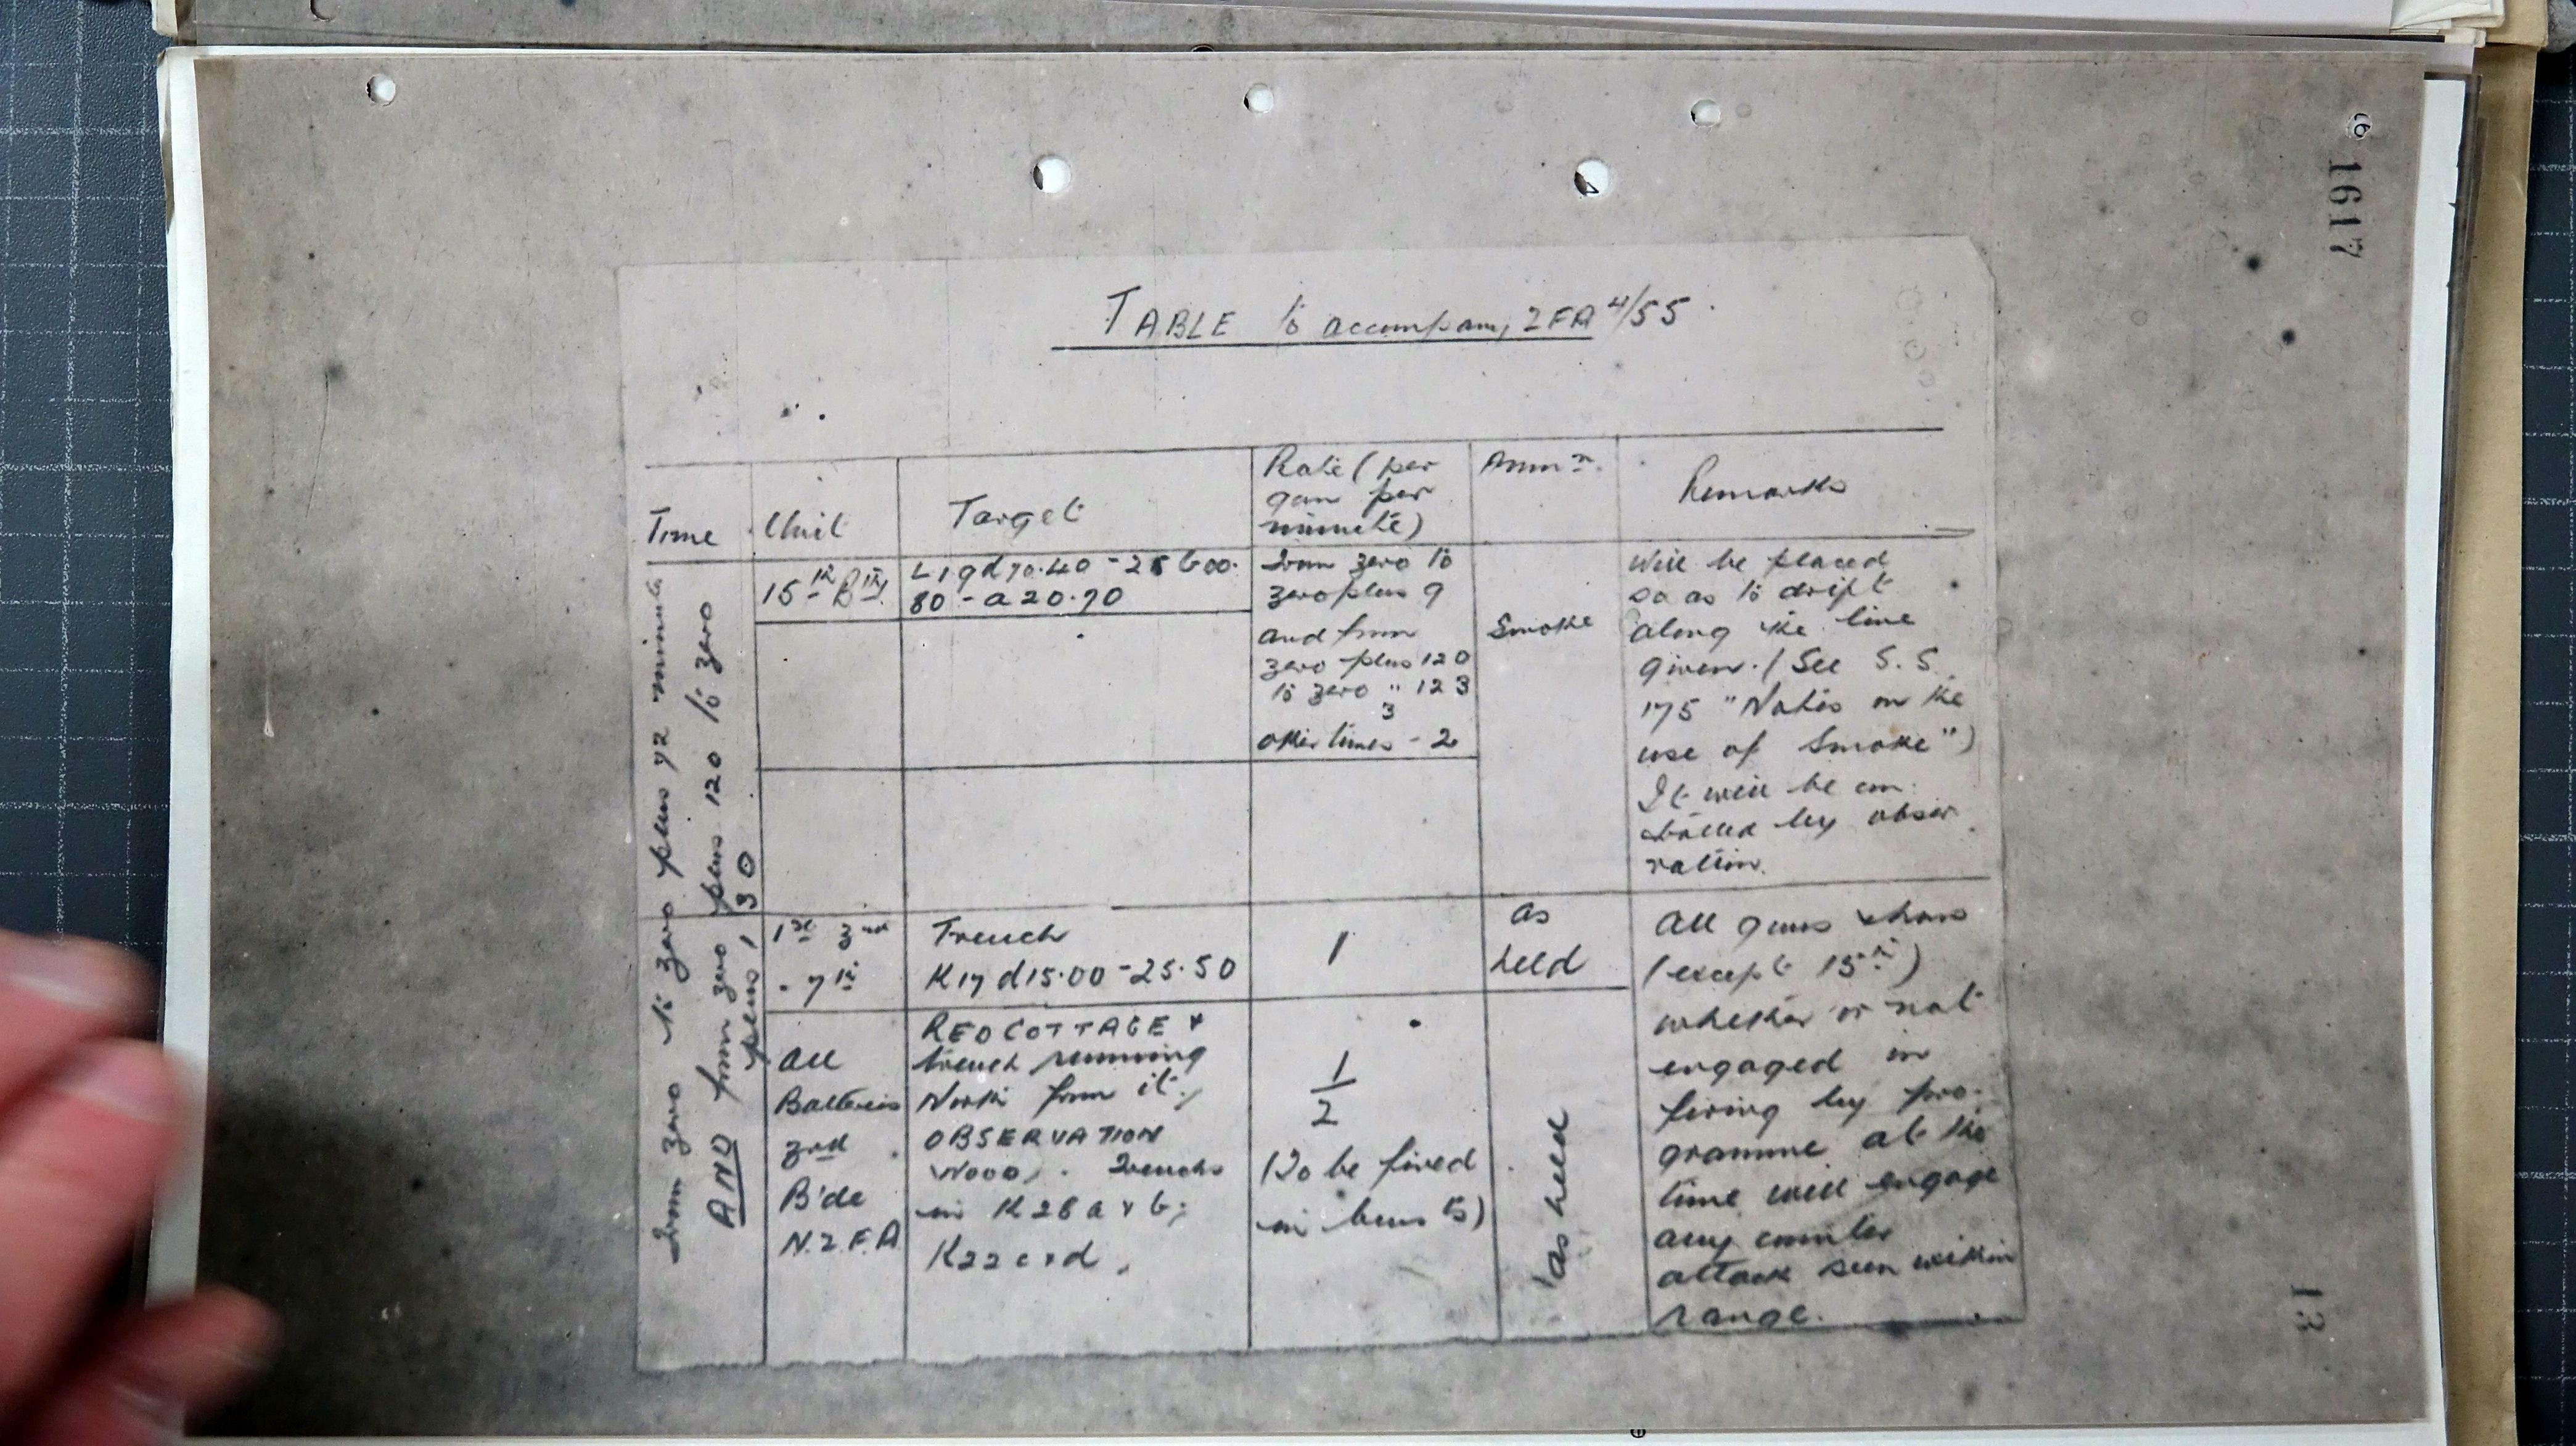 1617
TABLE to accompany ZFA 4/55
Time
Unit
Target
Rate (per
gun per
minute)
Ammn.
Remarks
From zero to zero plus 72 minutes
AND from zero plus 120 to zero
plus 130
15th Bty
L19d70.40 - 25 b00.
80 - a20.70
From zero to
zero plus 9
and from
zero plus 120
to zero " 123
3
other times - 2
Smoke
Will be placed
so as to drift
along the line
given. (See S.S.
175 "Notes on the
use of Smoke")
It will be con
trolled by obser
vation.
1st 3rd
- 7th
Trench
K17d15.00 - 25.50
1
as
held
All
Batteries
3rd
B'de
N.Z.F.A
RED COTTAGE &
trench running
North from it;
OBSERVATION
WOOD; Trenches
in K28a & b;
K22c & d,
1/2
(To be fired
in burs ts)
as held
All guns
(except 15th)
whether or not
engaged in
firing by pro-
gramme at the
time will engage
any counter
attack seen within
range.
13